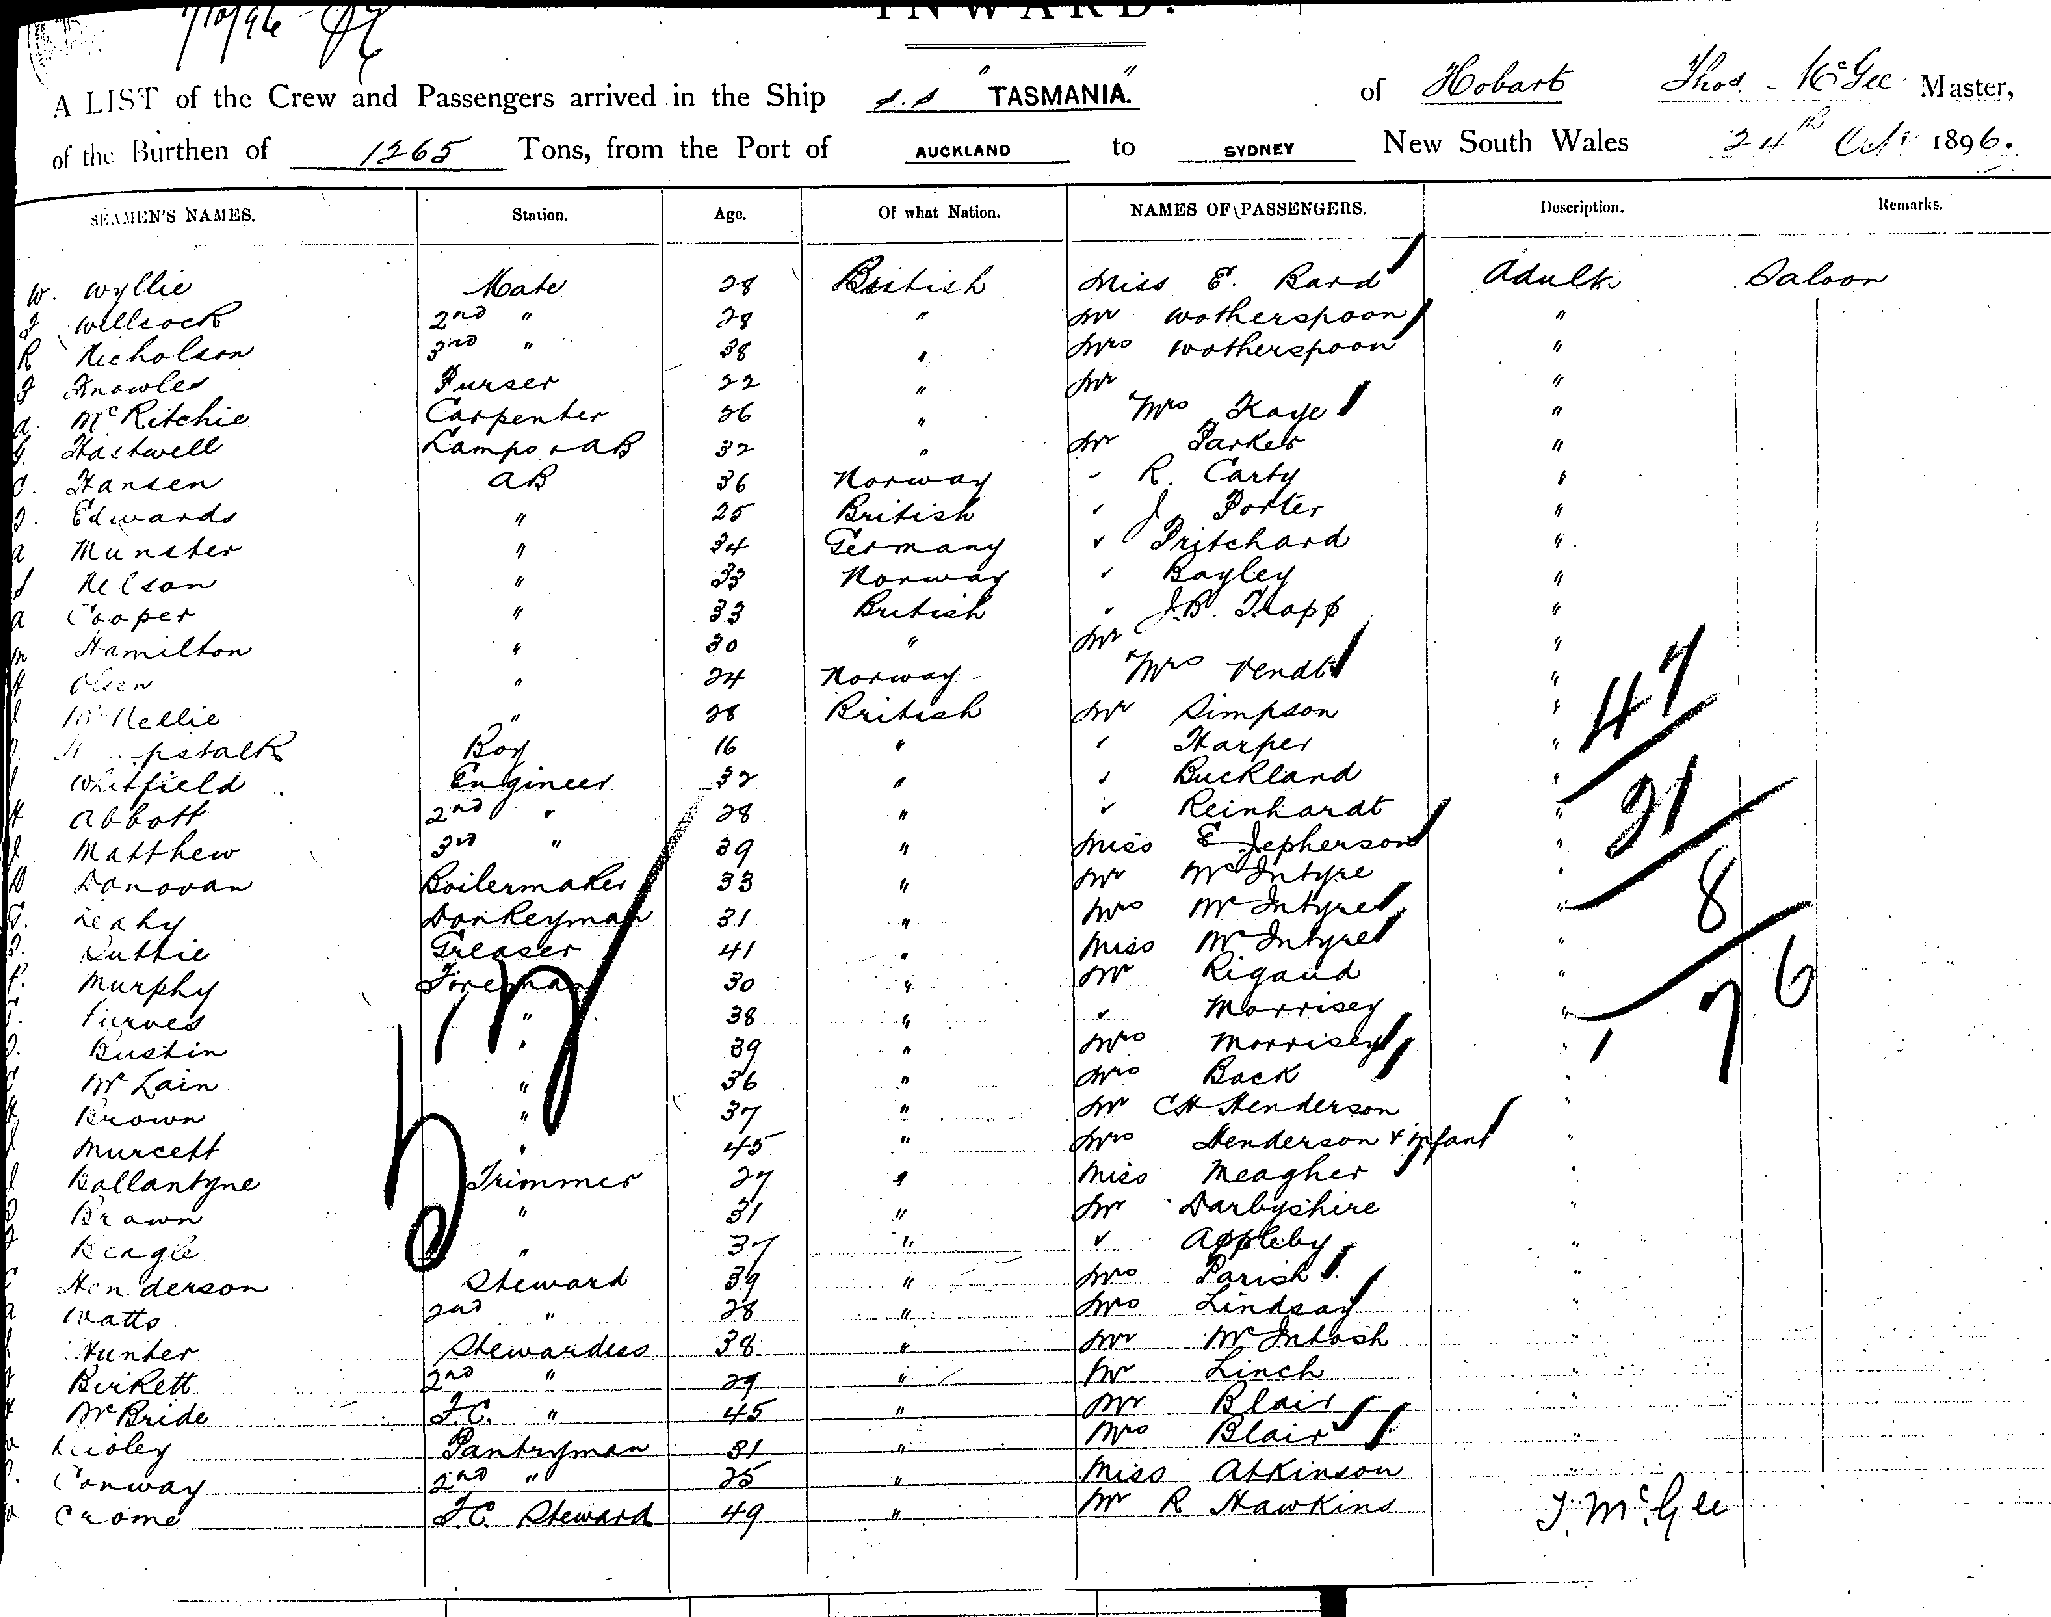 7/10/96
INWARD.
A LIST of the Crew and Passengers arrived in the Ship s.s "TASMANIA." of Hobart Thos. McGee Master,
of the Burthen of 1265 Tons, from the Port of AUCKLAND to SYDNEY New South Wales 24th Oct 1896.
SEAMEN'S NAMES. Station. Age. Of what Nation. NAMES OF PASSENGERS. Description. Remarks.
W. Wyllie Mate 28 British Miss E. Bard Adult Saloon
Willcock 2nd " 28 " Mr Wotherspoon "
R Nicholson 3rd " 38 " Mrs Wotherspoon "
Knowles Purser 22 " Mr "
A. McRitchie Carpenter 26 " Mrs Kaye "
Hastwell Lamps & AB 32 " Mr Parker "
Hansen AB 36 Norway " R. Carty "
Edwards " 25 British " J Porter "
A Munster " 34 Germany " Pritchard "
Nelson " 33 Norway " Bayley "
A Cooper " 33 British " J.B. Trapp "
Hamilton " 30 " Mr "
Olsen " 24 Norway Mrs Vendt "
McNellie " 28 British Mr Simpson "
pstalk Boy 16 " " Harper "
Whitfield Engineer 32 " " Buckland "
H Abbott 2nd " 28 " " Reinhardt "
Matthew 3rd " 39 " Miss E Jepherson "
Donovan Boilermaker 33 " Mr McIntyre "
Leahy Donkeyman 31 " Mrs McIntyre "
Duthie Greaser 41 " Miss McIntyre "
Murphy Foreman 30 " Mr Rigaud "
Purves " 38 " " Morrisey "
Bustin " 39 " Mrs Morrisey "
McLain " 36 " Mrs Back "
Brown " 37 " Mr CH Henderson "
Murcett " 45 " Mrs Henderson & infant "
Ballantyne Trimmer 27 " Miss Meagher "
Brown " 31 " Mr Darbyshire "
Beagle " 37 " " Appleby "
Henderson Steward 39 " Mrs Parish "
Watts 2nd " 28 " Mrs Lindsay "
Hunter Stewardess 38 " Mr McIntosh "
Birkett 2nd " 29 " Mr Linch "
McBride F.C. " 45 " Mr Blair "
Pantryman 31 " Mrs Blair "
Conway 2nd " 25 " Miss Atkinson "
Crome F.C. Steward 49 " Mr R Hawkins
47
21
8
76
T. McGee